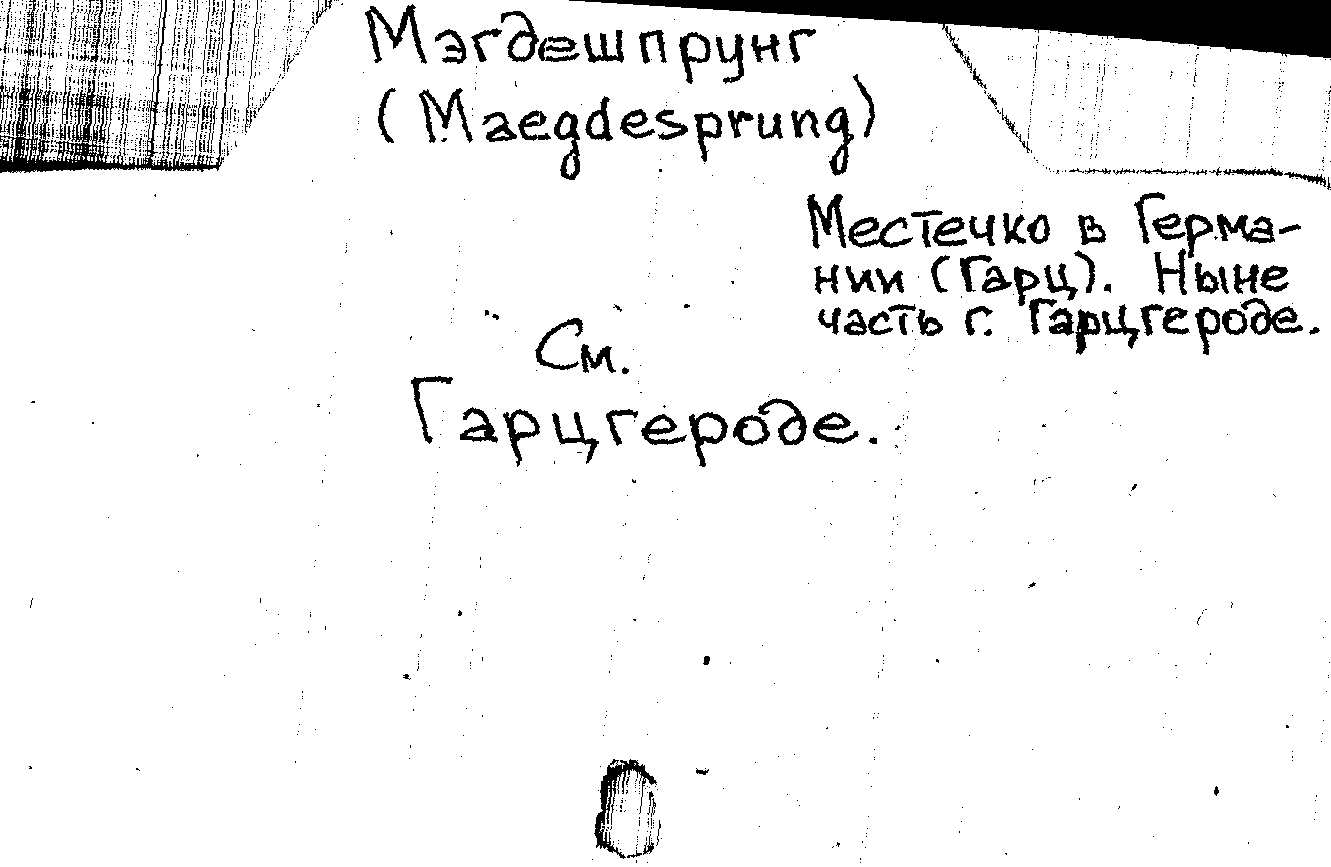 Мэгдешпрунг
(Maegdesprung)
Местечко в Герма-
нии (Гарц). Ныне
часть г. Гарцгероде.
См.
Гарцгероде.